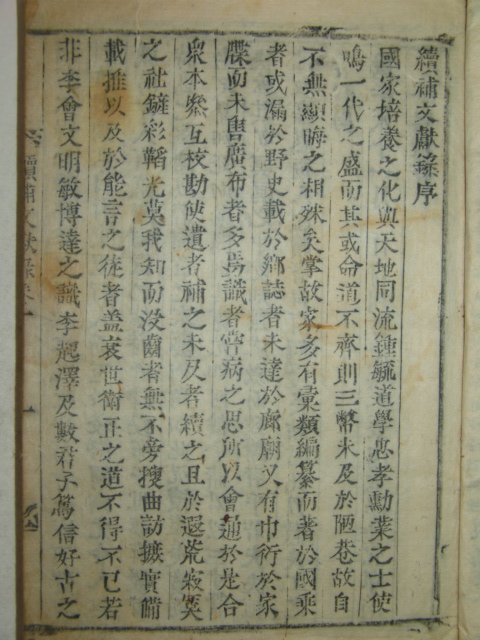 續補文獻錄序
國家培養之化與天地同流鍾毓道學忠孝勳業之士使
鳴一代之盛而其或命道不齊則三幣未及於陋巷故自
不無顯晦之相殊矣掌故家多有彙類編纂而著於國乘
者或漏於野史載於鄕誌者未達於廊廟又有巾衍於家
牒而未售廣布者多焉識者嘗病之思所以會通於是合
衆本叅互校勘使遺者補之未及者續之且於遐荒寂寞
之社鏟彩韜光莫我知而沒齒者無不旁搜曲訪摭實備
載推以及於能言之徒者盖衰世衛正之道不得不已若
非李會文明敏博達之識李趩澤及數君子篤信好古之
續補文獻錄卷一